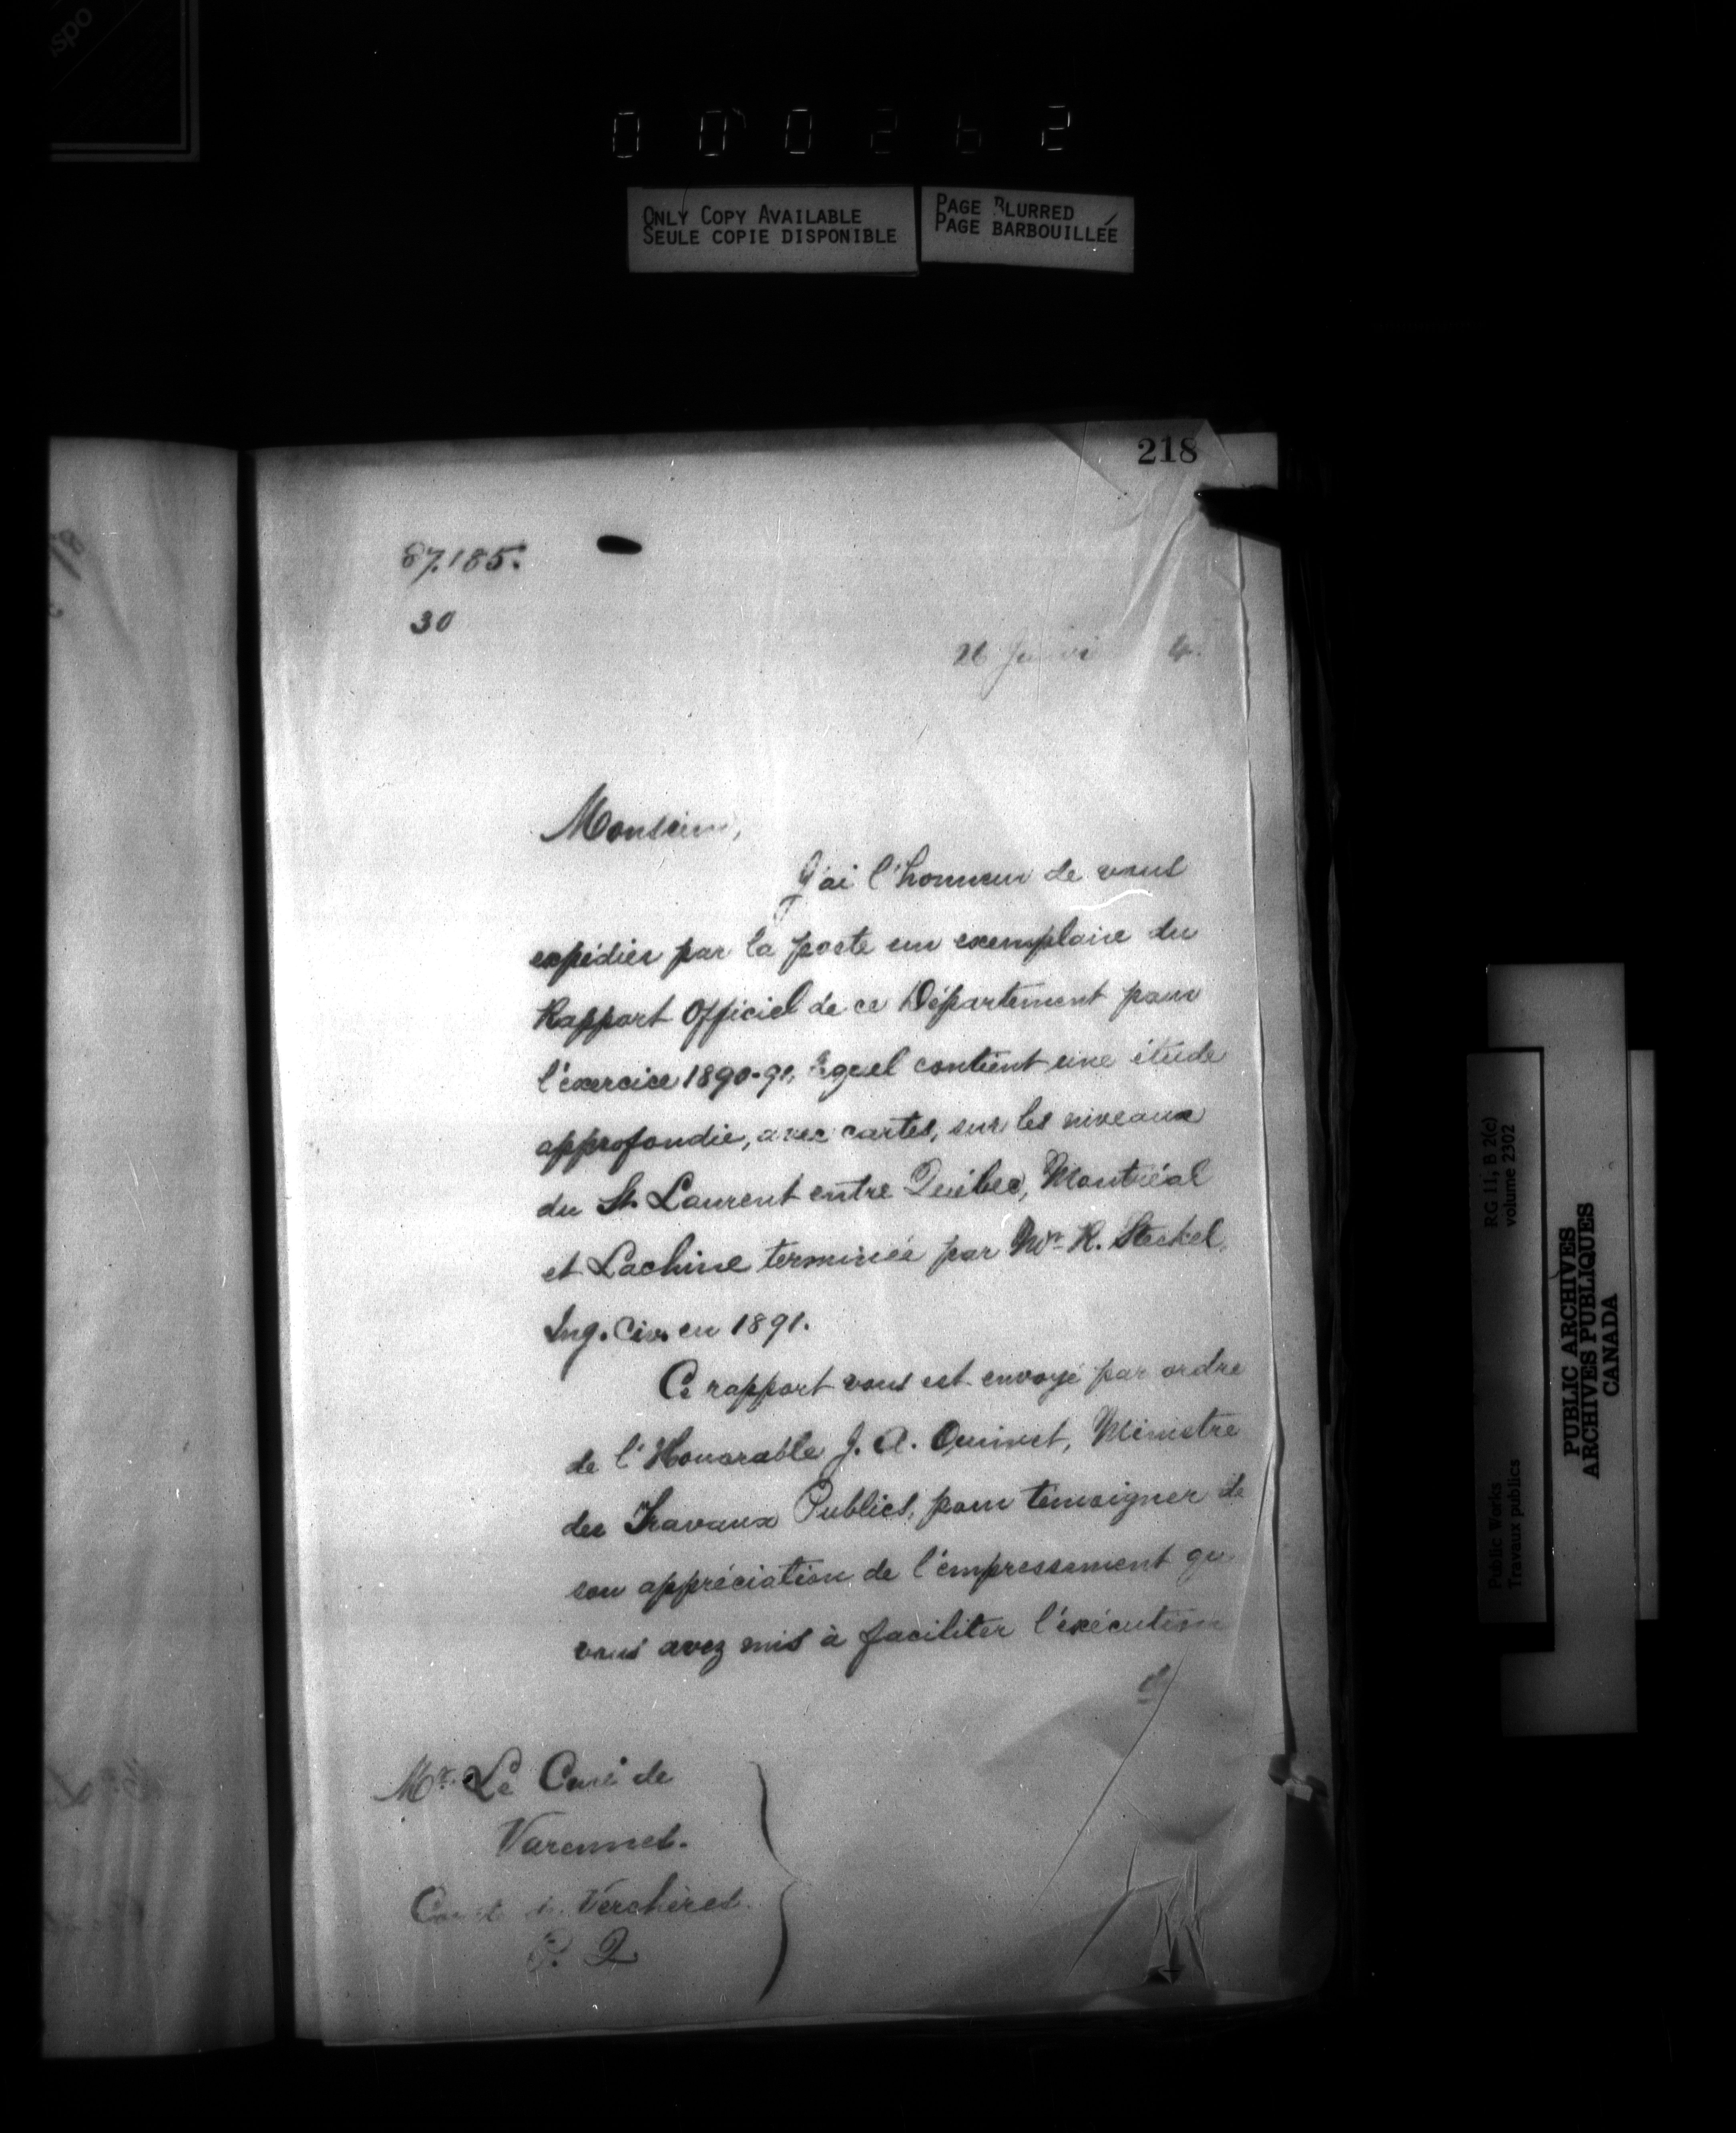 000262
ONLY COPY AVAILABLE
SEULE COPIE DISPONIBLE
PAGE BLURRED
PAGE BARBOUILLÉE
218
87.185.
30
26 Janvier 4.
Monsieur,
J'ai l'honneur de vous
expédier par la poste un exemplaire du
Rapport Officiel de ce Département pour
l'exercice 1890-91, lequel contient une étude
approfondie, avec cartes, sur les niveaux
du St. Laurent entre Québec, Montréal
et Lachine terminée par Mr. R. Steckel,
Ing. Civ. en 1891.
Ce rapport vous est envoyé par ordre
de l'Honorable J. A. Ouimet, Ministre
des Travaux Publics, pour témoigner de
son appréciation de l'empressement que
vous avez mis à faciliter l'exécution
Mr. Le Curé de
Varennes.
Comté de Verchères.
P. Q
RG 11, B 2(c)
volume 2302
Public Works
Travaux publics
PUBLIC ARCHIVES
ARCHIVES PUBLIQUES
CANADA